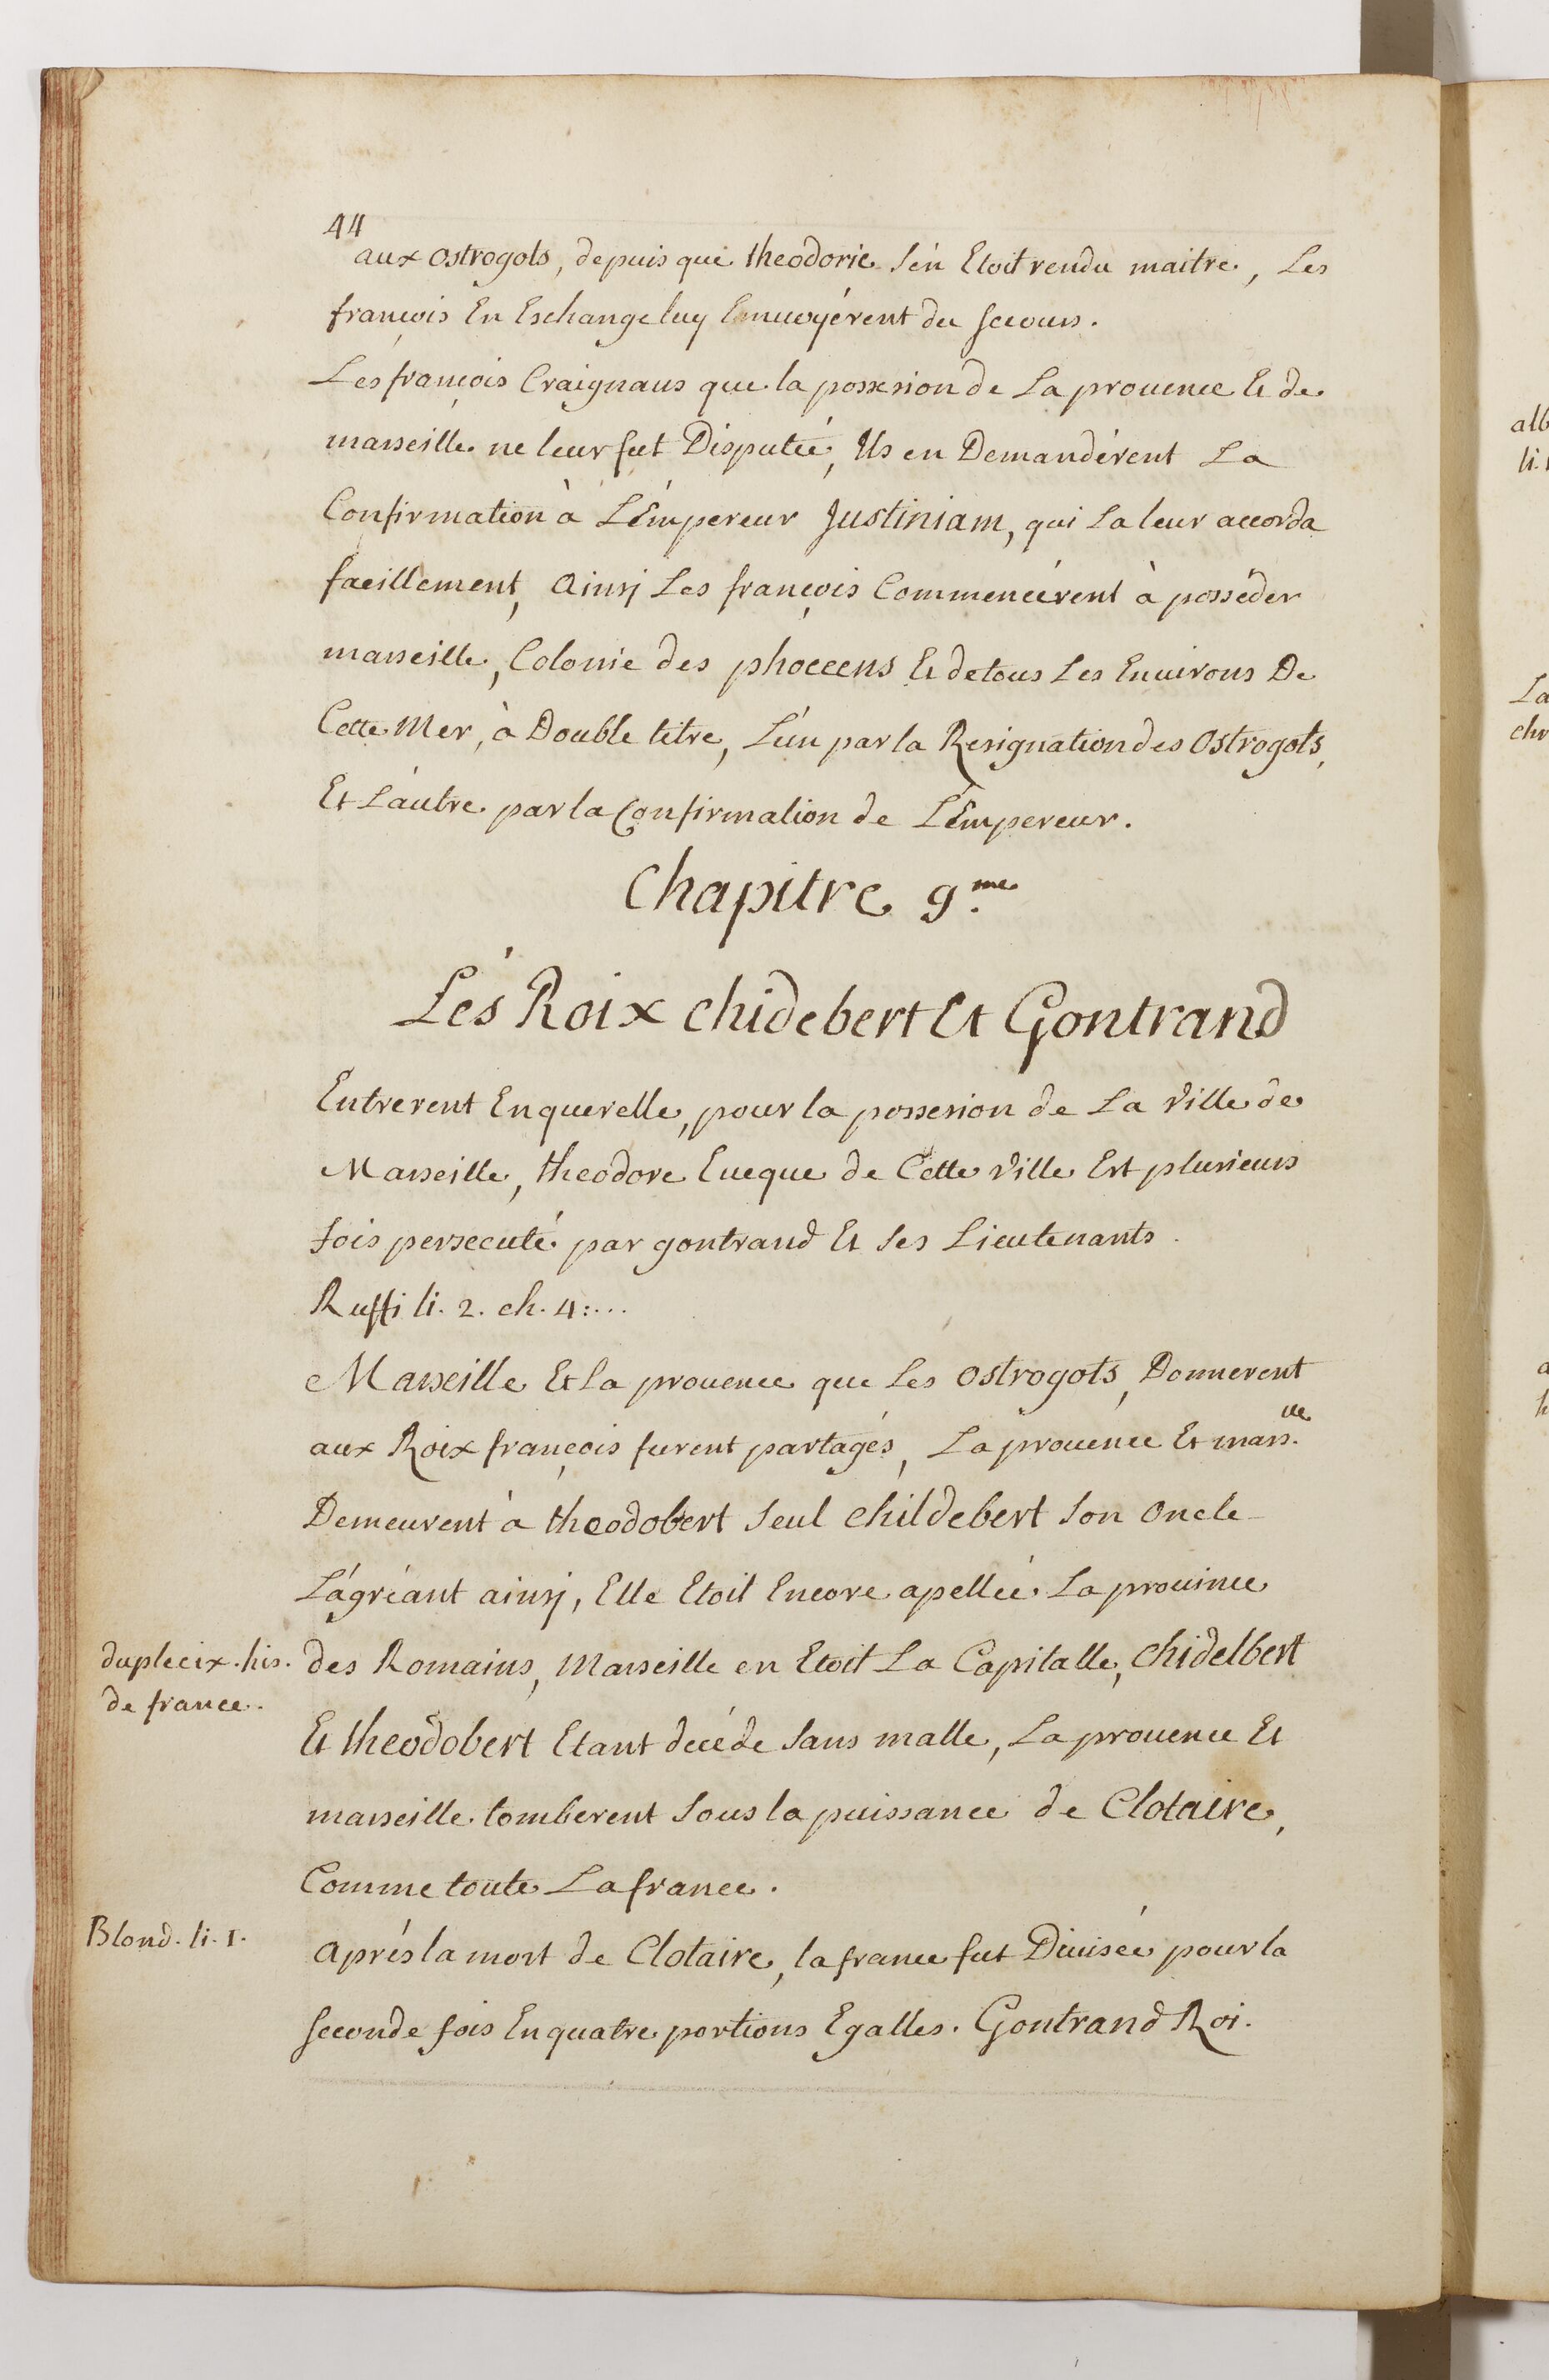 44
aux ostrogots, depuis que theodoric s'én Etoit rendu maitre, Les
françois En Eschange luy Enuuoyérent du secours.
Lés françois Craignans que la possesion de La prouence Et de
marseille ne leur fut Disputée, Ils en Demandérent La
Confirmation à L'Empereur Justiniam, qui La leur accorda
facillement, Ainsj Les françois Commencérent à posséder
marseille, Colonie des phocéens Et de tous Les Enuirons De
Cette Mer, à Double titre, L'ún par la Resignation des Ostrogots,
Et L'áutre par la Confirmation de L'Empereur.
Chapitre 9.me
Lés Roix chidebert Et Gontrand
Entrerent En querelle, pour la possesion de La ville de
Marseille, theodore Eueque de Cette ville Est plusieurs
fois persecuté par gontrand Et ses Lieutenants.
Ruffi li. 2. ch. 4:...
Marseille Et la prouence que Les ostrogots, Donnerent
aux Roix françois furent partagés, La prouence Et mars.lle
Demeurent à theodobert seul childebert son oncle
L'ágréant ainsj, Elle Etoit Encore apellée La prouince
duplecix. his. des Romains, Marseille en Etoit La Capitalle, chidelbert
de france.
Et theodobert Etant décéde sans malle, La prouence Et
marseille tomberent sous la puissance de Clotaire,
Comme toute La france.
Blond. li. 1. aprés la mort de Clotaire, la france fut Diuisée pour la
seconde fois En quatre portions Egalles. Gontrand Roi.
alb
li. 1
La
chr
a
h